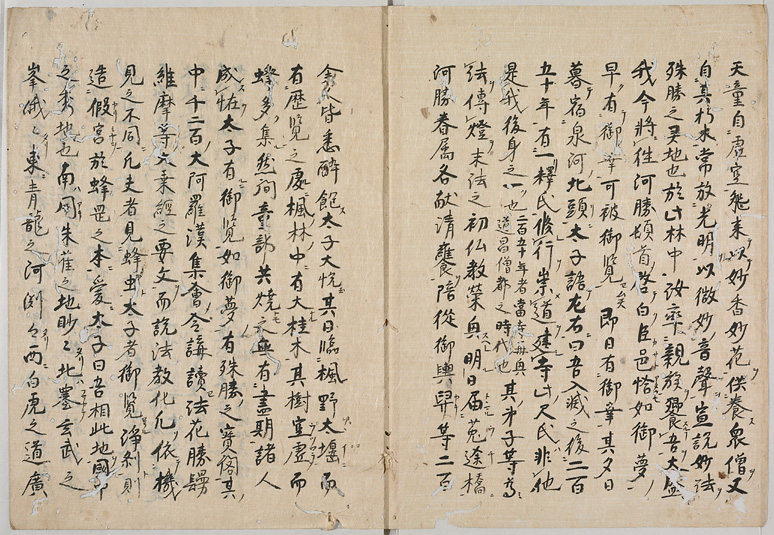 天童自虚空飛来以妙香妙花供養衆僧又
自其朽木常放光明以微妙音聲宣説妙法
殊勝之霊地也於此林中汝率親族饗吾太盛
我今將往河勝頓首啓白臣邑恰如御夢
早有御幸可被御覧即日有御幸其夕日
暮宿泉河北頭太子語左右曰吾入滅之後二百
五十年有一釋氏修行崇道建寺此尺氏非他
是我後身之一也二百五十年者當寺再興道昌僧都之時代也其弟子等為
法傳燈末法之初仏教榮興明日届菟途橋
河勝眷属各献清饌陪從御輿舁等二百
余人皆悉酔飽太子大悦其日臨楓野大堰而
有歴覧之處楓林中有大桂木其樹空虚而
蜂多集然詞童部共焼之無有盡期諸人
成怪太子有御覧如御夢有殊勝之寳閣其
中千二百大阿羅漢集會令講讀法花勝鬘
維摩等大乗經之要文而説法教化凡依機
見之不同凡夫者見蜂虫太子者御覧浄刹則
造假宮於蜂罡之本愛太子曰吾相此地國中
之秀地也南開朱雀之地眇々北塞玄武之
峯峨々東青龍之河渕々西白虎之道廣